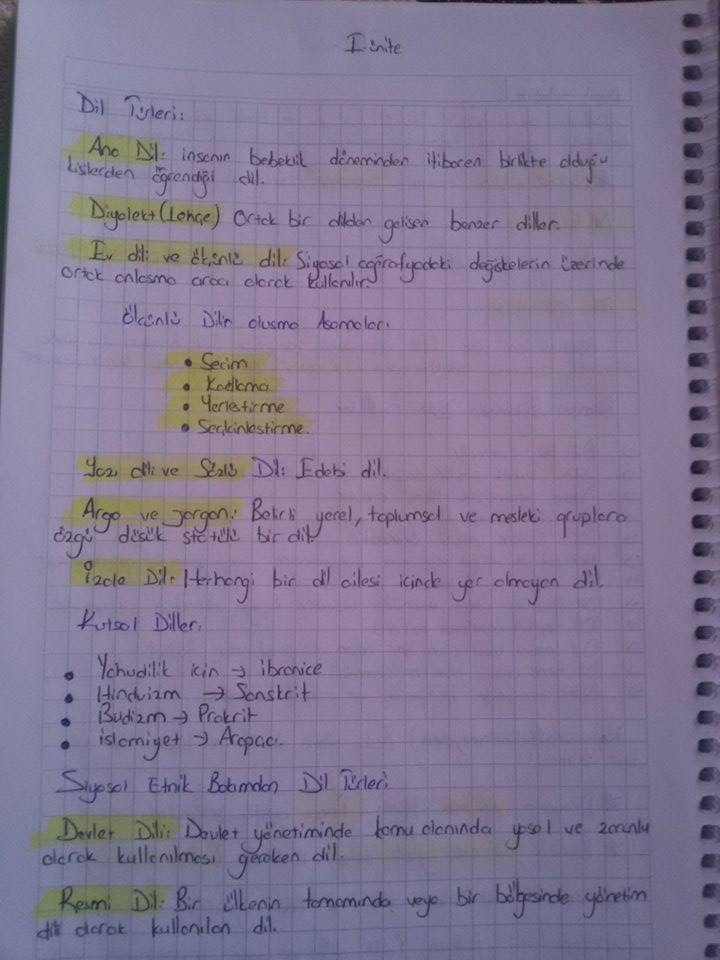 I Ünite
Dil Türleri:
Ana Dil: insanın bebeklik döneminden itibaren birlikte olduğu
kişilerden öğrendiği dil.
Diyalekt (Lehçe) Ortak bir dilden gelişen benzer diller.
Ev dili ve ölçünlü dil: Siyasal coğrafyadaki değişkelerin üzerinde
ortak anlaşma aracı olarak kullanılır.
Ölçünlü Dilin oluşma Aşamaları.
• Seçim
• Kodlama
• Yerleştirme
• Seçkinleştirme.
Yazı dili ve Sözlü Dil: Edebi dil.
Argo ve jargon: Belirli yerel, toplumsal ve mesleki gruplara
özgü düşük statülü bir dil.
İzole Dil: Herhangi bir dil ailesi içinde yer almayan dil.
Kutsal Diller.
• Yahudilik için → ibranice
• Hinduizm → Sanskrit
• Budizm → Prakrit
• islamiyet → Arapça.
Siyasal Etnik Bakımdan Dil Türleri
Devlet Dili: Devlet yönetiminde kamu alanında yasal ve zorunlu
olarak kullanılması gereken dil.
Resmi Dil: Bir ülkenin tamamında veya bir bölgesinde yönetim
dili olarak kullanılan dil.